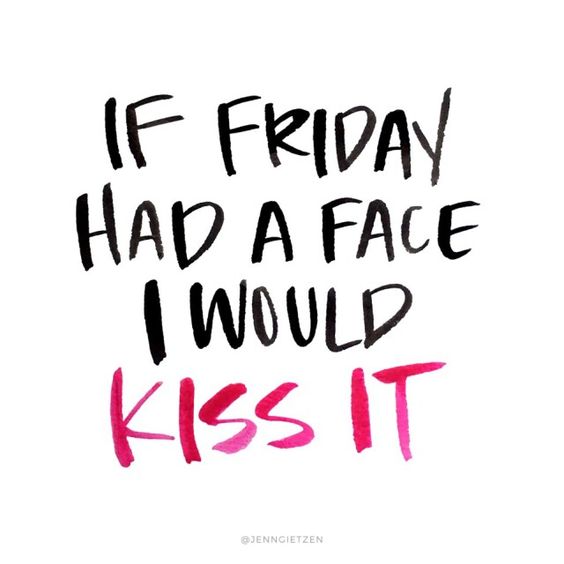 IF FRIDAY
HAD A FACE
I WOULD
KISS IT
@JENNGIETZEN